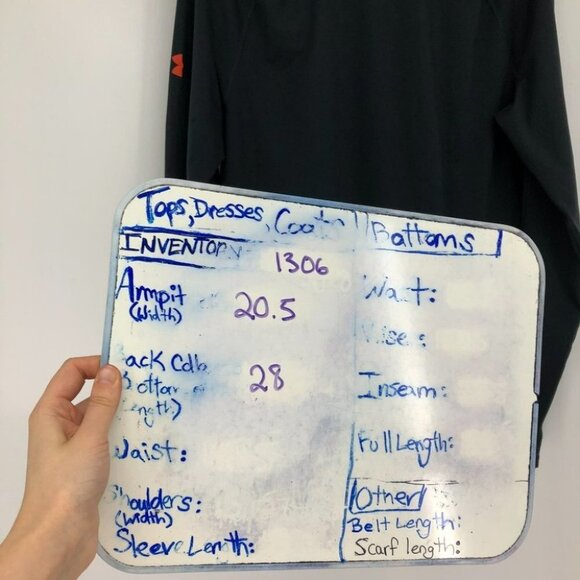 Tops, Dresses, Coats
INVENTORY
1306
Armpit
(Width)
20.5
Back
28
Waist:
Shoulders:
(Width)
Sleeve Length:
Bottoms
Waist:
Inseam:
Full Length:
Other
Belt Length:
Scarf length: